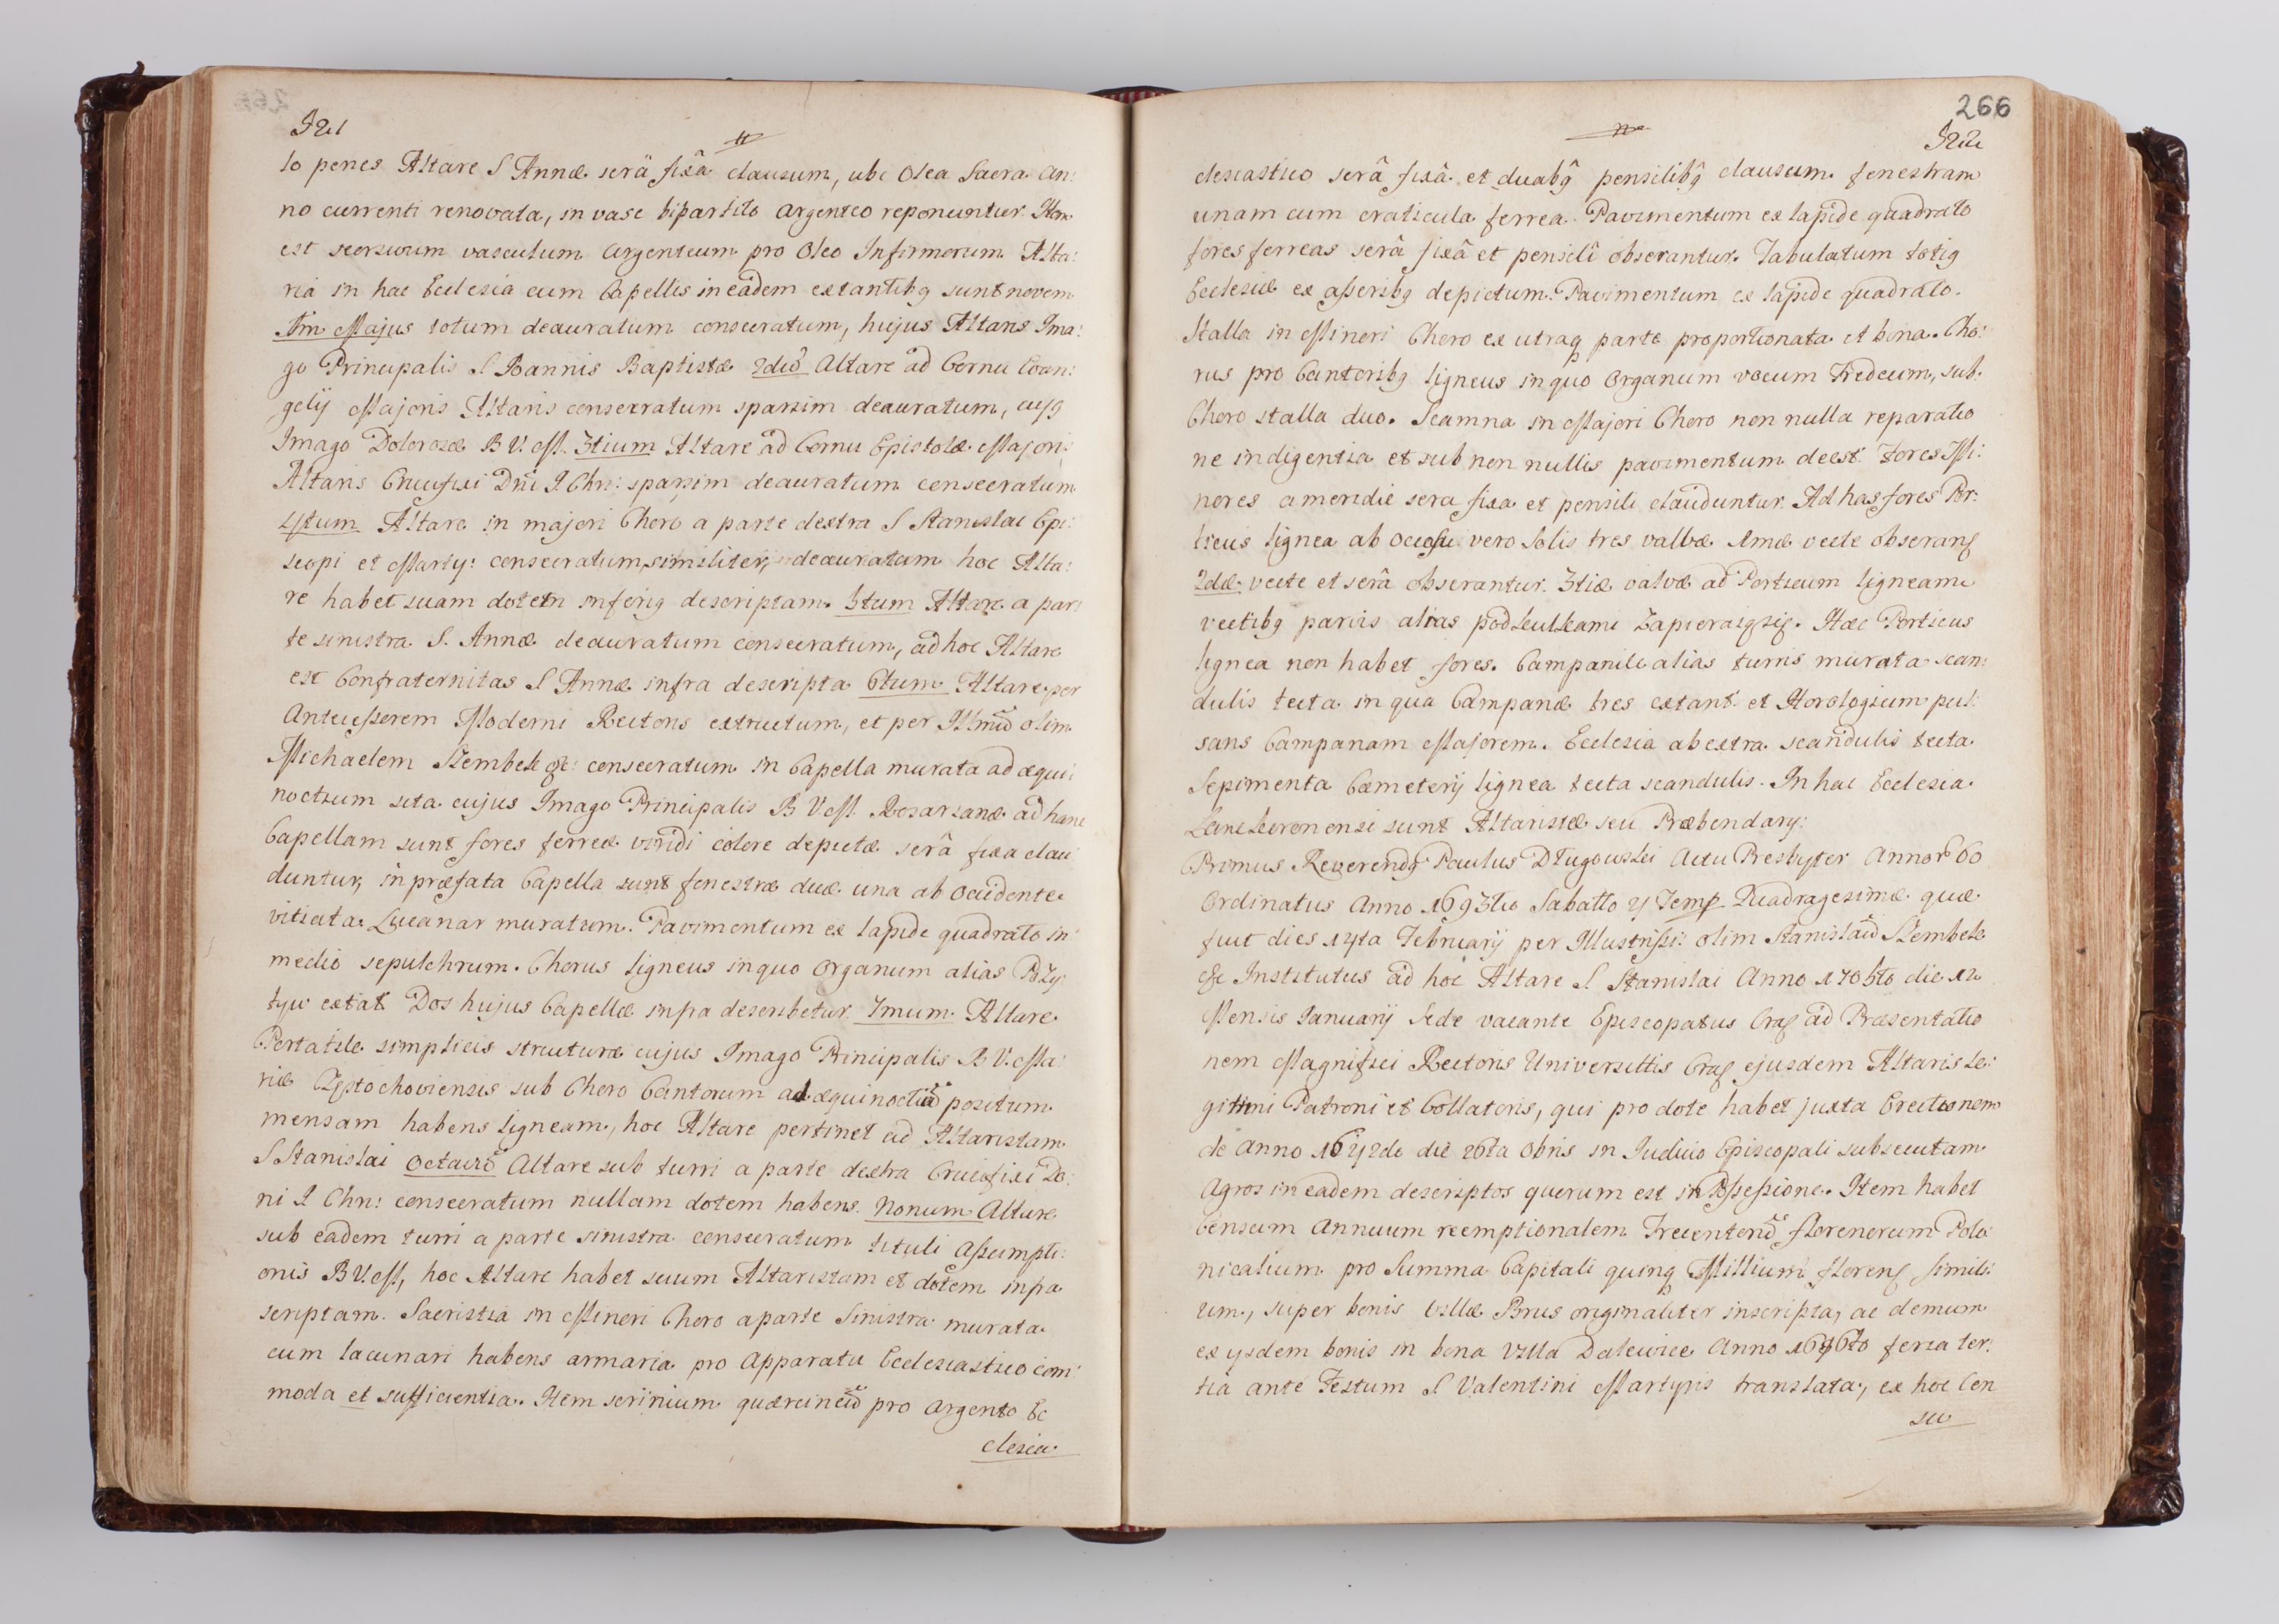 521
lo penes Altare S Annæ serâ fixâ clausum, ubi Olea Sacra an:
no currenti renovata, in vase bipartito argenteo reponuntur. Item
est seorsivum vasculum argenteum pro Oleo Infirmorum. Alta:
ria in hac Ecclesia cum Capellis in eâdem extantibq sunt novem
Im Majus totum deauratum consecratum, hujus Altaris Ima:
go Principalis S Ioannis Baptistæ 2dũ Altare ad Cornu Evan:
gelij Majoris Altaris consecratum sparsim deauratum, cujq
Imago Dolorosæ B V. M. 3tium Altare ad Cornu Epistolæ Majori:
Altaris Crucifixi Dni I. Chri: sparsim deauratum consecratum
4tum Altare in majori Choro a parte dextra S Stanislai Epi:
scopi et Marty: consecratum, similiter, deauratum hoc Alta:
re habet suam dotem inferiq descriptam. 5tum Altare a par:
te sinistra S. Annæ deauratum consecratum, ad hoc Altare
est Confraternitas S Annæ infra descripta 6tum Altare per
Antecessorem Moderni Rectoris extructum, et per Illmũ olim
Michaelem Szembek &c: consecratum in Capella murata ad æqui:
noctium sita cujus Imago Principalis B V M. Rosarianæ ad hanc
Capellam sunt fores ferreæ viridi colore depictæ serâ fixa clau
duntur, in præfata Capella sunt fenestræ duæ una ab occidente
vitiata. Lacunar muratum. Pavimentum ex lapide quadrato in
medio sepulchrum. Chorus ligneus in quo Organum alias Pozy
tyw extat Dos hujus Capellæ infra describetur 7mum Altare
Portatile simplicis structuræ cujus Imago Principalis B V. Ma:
riæ Częstochoviensis sub Choro Cantorum ad æquinoctiũ positum
mensam habens ligneam, hoc Altare pertinet ad Altaristam
S Stanislai Octavũ Altare sub turri a parte dextra Crucifixi Do:
ni I Chri: consecratum nullam dotem habens. Nonum Altare
sub eadem turri a parte sinistra consecratum tituli Assumpti:
onis B V. M, hoc Altare habet suum Altaristam et dotem infra
scriptam. Sacristia in Minori Choro a parte sinistra murata
cum lacunari habens armaria pro Apparatu Ecclesiastico com:
moda et sufficientia. Item scrinium quercineũ pro argento Ec
clesia

266
522
clesiastico serâ fixâ et duabq pensilibq clausum. fenestram
unam cum craticula ferrea. Pavimentum ex lapide quadrato
fores ferreas serâ fixâ et pensili obserantur. Tabulatum totiq
Ecclesiæ ex asseribq depictum. Pavimentum ex lapide quadrato.
Stalla in Minori Choro ex utraq parte proportionata et bona. Cho:
rus pro Cantoribq ligneus in quo Organum vocum Tredecim, sub
Choro stalla duo. Scamna in Majori Choro non nulla reparatio
ne indigentia et sub non nullis pavimentum deest. Fores Mi:
nores a meridie sera fixa et pensili clauduntur. Ad has fores Por:
ticus lignea ab occasu vero Solis tres valvæ 1mæ vecte obseranf
2dæ vecte et serâ obserantur. 3tiæ valvæ ad Porticum ligneam
vectibq parvis alias podkulkami zapieraią się. Hæc Porticus
lignea non habet fores. Campanile alias turris murata scan:
dulis tecta in qua Campanæ tres extant et Horologium pul:
sans Campanam Majorem. Ecclesia ab extra scandulis tecta.
Sepimenta Cæmeterij lignea tecta scandulis. In hac Ecclesia
Lanckoronensi sunt Altaristæ seu Præbendarij:
Primus Reverendq Paulus Długowski Actu Presbyter Annor 60
Ordinatus Anno 1693tio Sabatto 4 Temp Quadragesimæ quæ
fuit dies 14ta Februarij per Illustrissi: olim Stanislaũ Szembek
&c Institutus ad hoc Altare S Stanislai Anno 1705to die 12
Mensis Ianuarij Sede vacante Episcopatus Crac ad Præsentatio
nem Magnifici Rectoris Universittis Crac ejusdem Altaris Le:
gittimi Patroni et Collatoris, qui pro dote habet juxta Erectionem
de Anno 1642do die 26ta Obris in Iudicio Episcopali subsecutam
Agros in eadem descriptos quorum est in Possessione. Item habet
Censum Annuum reemptionalem Trecentorũ florenorum Polo:
nicalium pro Summa Capitali quinq Millium florenf simili:
um, super bonis Villæ Brus originaliter inscripta, ac demum
ex ijsdem bonis in bona Villa Dalewice Anno 1676to feria ter:
tia ante Festum S Valentini Martyris translata, ex hoc Cen
su